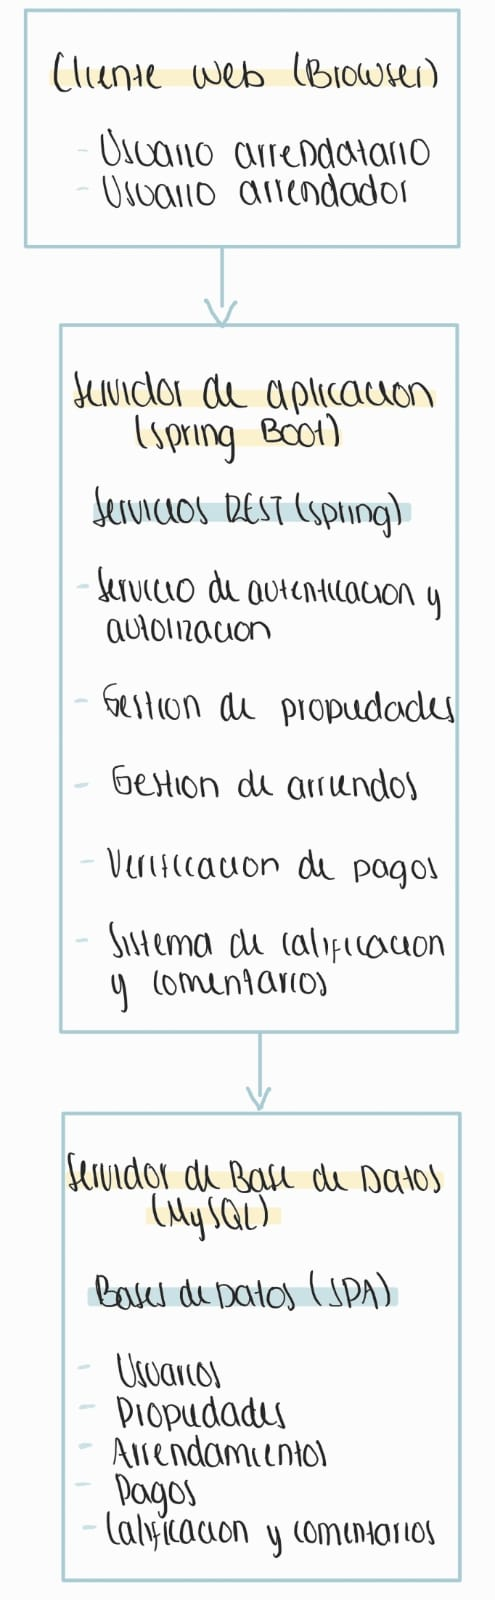 Cliente web (Browser)
- Usuario arrendatario
- Usuario arrendador
Servidor de aplicacion
(spring Boot)
Servicios REST (spring)
- Servicio de autenticacion y
autorizacion
- Gestion de propiedades
- Gestion de arriendos
- Verificacion de pagos
- Sistema de calificacion
y comentarios
Servidor de Base de Datos
(MySQL)
Bases de Datos (JPA)
- Usuarios
- Propiedades
- Arrendamientos
- Pagos
- Calificacion y comentarios